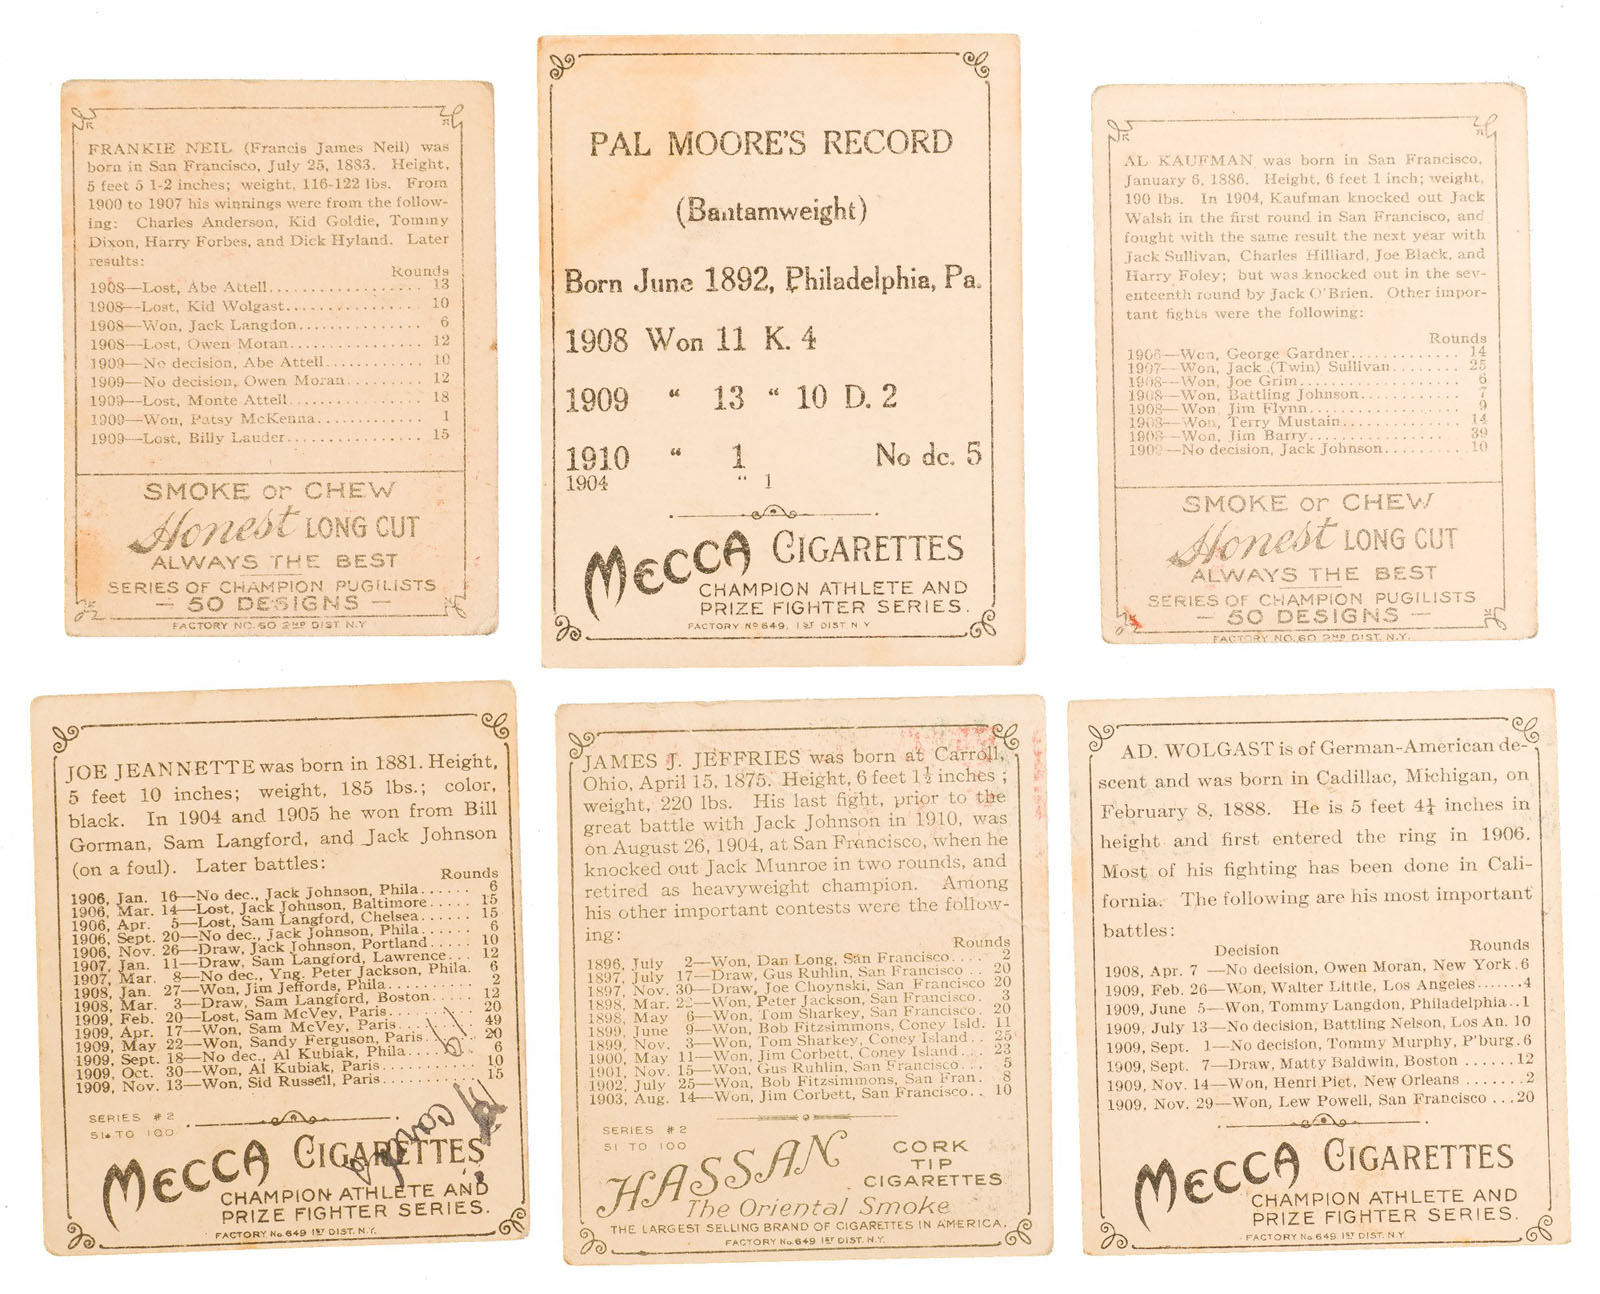 FRANKIE NEIL (Francis James Neil) was
born in San Francisco, July 25, 1883. Height,
5 feet 5 1-2 inches; weight, 116-122 lbs. From
1900 to 1907 his winnings were from the follow-
ing: Charles Anderson, Kid Goldie, Tommy
Dixon, Harry Forbes, and Dick Hyland. Later
results:
Rounds
1908—Lost, Abe Attell.................. 13
1908—Lost, Kid Wolgast............... 10
1908—Won, Jack Langdon............. 6
1908—Lost, Owen Moran.............. 12
1909—No decision, Abe Attell.......... 10
1909—No decision, Owen Moran......... 12
1909—Lost, Monte Attell............... 18
1909—Won, Patsy McKenna............ 1
1909—Lost, Billy Lauder............... 15
SMOKE or CHEW
Honest LONG CUT
ALWAYS THE BEST
SERIES OF CHAMPION PUGILISTS
— 50 DESIGNS —
FACTORY NO. 60 2ND DIST. N.Y
PAL MOORE'S RECORD
(Bantamweight)
Born June 1892, Philadelphia, Pa.
1908 Won 11 K. 4
1909 “ 13 “ 10 D. 2
1910 “ 1 No dc. 5
1904 “ 1
MECCA CIGARETTES
CHAMPION ATHLETE AND
PRIZE FIGHTER SERIES.
FACTORY Nº 649, 1ST DIST N Y
AL KAUFMAN was born in San Francisco,
January 6, 1886. Height, 6 feet 1 inch; weight,
190 lbs. In 1904, Kaufman knocked out Jack
Walsh in the first round in San Francisco, and
fought with the same result the next year with
Jack Sullivan, Charles Hilliard, Joe Black, and
Harry Foley; but was knocked out in the sev-
enteenth round by Jack O'Brien. Other impor-
tant fights were the following:
Rounds
1906—Won, George Gardner............. 14
1907—Won, Jack (Twin) Sullivan........ 25
1908—Won, Joe Grim................... 6
1908—Won, Battling Johnson............ 7
1908—Won, Jim Flynn.................. 9
1908—Won, Terry Mustain.............. 14
1908—Won, Jim Barry.................. 39
1909—No decision, Jack Johnson......... 10
SMOKE or CHEW
Honest LONG CUT
ALWAYS THE BEST
SERIES OF CHAMPION PUGILISTS
— 50 DESIGNS —
FACTORY NO. 60 2ND DIST. N.Y.
JOE JEANNETTE was born in 1881. Height,
5 feet 10 inches; weight, 185 lbs.; color,
black. In 1904 and 1905 he won from Bill
Gorman, Sam Langford, and Jack Johnson
(on a foul). Later battles:
Rounds
1906, Jan. 16—No dec., Jack Johnson, Phila...... 6
1906, Mar. 14—Lost, Jack Johnson, Baltimore..... 15
1906, Apr. 5—Lost, Sam Langford, Chelsea...... 15
1906, Sept. 20—No dec., Jack Johnson, Phila...... 6
1906, Nov. 26—Draw, Jack Johnson, Portland..... 10
1907, Jan. 11—Draw, Sam Langford, Lawrence... 12
1907, Mar. 8—No dec., Yng. Peter Jackson, Phila. 6
1908, Jan. 27—Won, Jim Jeffords, Phila.......... 2
1908, Mar. 3—Draw, Sam Langford, Boston...... 12
1909, Feb. 20—Lost, Sam McVey, Paris.......... 20
1909, Apr. 17—Won, Sam McVey, Paris.......... 49
1909, May 22—Won, Sandy Ferguson, Paris...... 20
1909, Sept. 18—No dec., Al Kubiak, Phila......... 6
1909, Oct. 30—Won, Al Kubiak, Paris............ 10
1909, Nov. 13—Won, Sid Russell, Paris........... 15
SERIES #2
51 TO 100
MECCA CIGARETTES
CHAMPION ATHLETE AND
PRIZE FIGHTER SERIES.
FACTORY No. 649 1ST DIST. N.Y.
JAMES J. JEFFRIES was born at Carroll,
Ohio, April 15, 1875. Height, 6 feet 1½ inches;
weight, 220 lbs. His last fight, prior to the
great battle with Jack Johnson in 1910, was
on August 26, 1904, at San Francisco, when he
knocked out Jack Munroe in two rounds, and
retired as heavyweight champion. Among
his other important contests were the follow-
ing:
Rounds
1896, July 2—Won, Dan Long, San Francisco.... 2
1897, July 17—Draw, Gus Ruhlin, San Francisco .. 20
1897, Nov. 30—Draw, Joe Choynski, San Francisco 20
1898, Mar. 22—Won, Peter Jackson, San Francisco. 3
1898, May 6—Won, Tom Sharkey, San Francisco. 20
1899, June 9—Won, Bob Fitzsimmons, Coney Isld. 11
1899, Nov. 3—Won, Tom Sharkey, Coney Island... 25
1900, May 11—Won, Jim Corbett, Coney Island.... 23
1901, Nov. 15—Won, Gus Ruhlin, San Francisco... 5
1902, July 25—Won, Bob Fitzsimmons, San Fran. 8
1903, Aug. 14—Won, Jim Corbett, San Francisco.. 10
SERIES #2
51 TO 100
HASSAN
CORK
TIP
CIGARETTES
The Oriental Smoke
THE LARGEST SELLING BRAND OF CIGARETTES IN AMERICA.
FACTORY No. 649 1ST DIST. N.Y.
AD. WOLGAST is of German-American de-
scent and was born in Cadillac, Michigan, on
February 8, 1888. He is 5 feet 4¼ inches in
height and first entered the ring in 1906.
Most of his fighting has been done in Cali-
fornia. The following are his most important
battles:
Decision Rounds
1908, Apr. 7 —No decision, Owen Moran, New York. 6
1909, Feb. 26—Won, Walter Little, Los Angeles.......4
1909, June 5—Won, Tommy Langdon, Philadelphia..1
1909, July 13—No decision, Battling Nelson, Los An. 10
1909, Sept. 1—No decision, Tommy Murphy, P'burg. 6
1909, Sept. 7—Draw, Matty Baldwin, Boston .......12
1909, Nov. 14—Won, Henri Piet, New Orleans .......2
1909, Nov. 29—Won, Lew Powell, San Francisco ...20
MECCA CIGARETTES
CHAMPION ATHLETE AND
PRIZE FIGHTER SERIES.
FACTORY No. 649 1ST DIST. N.Y